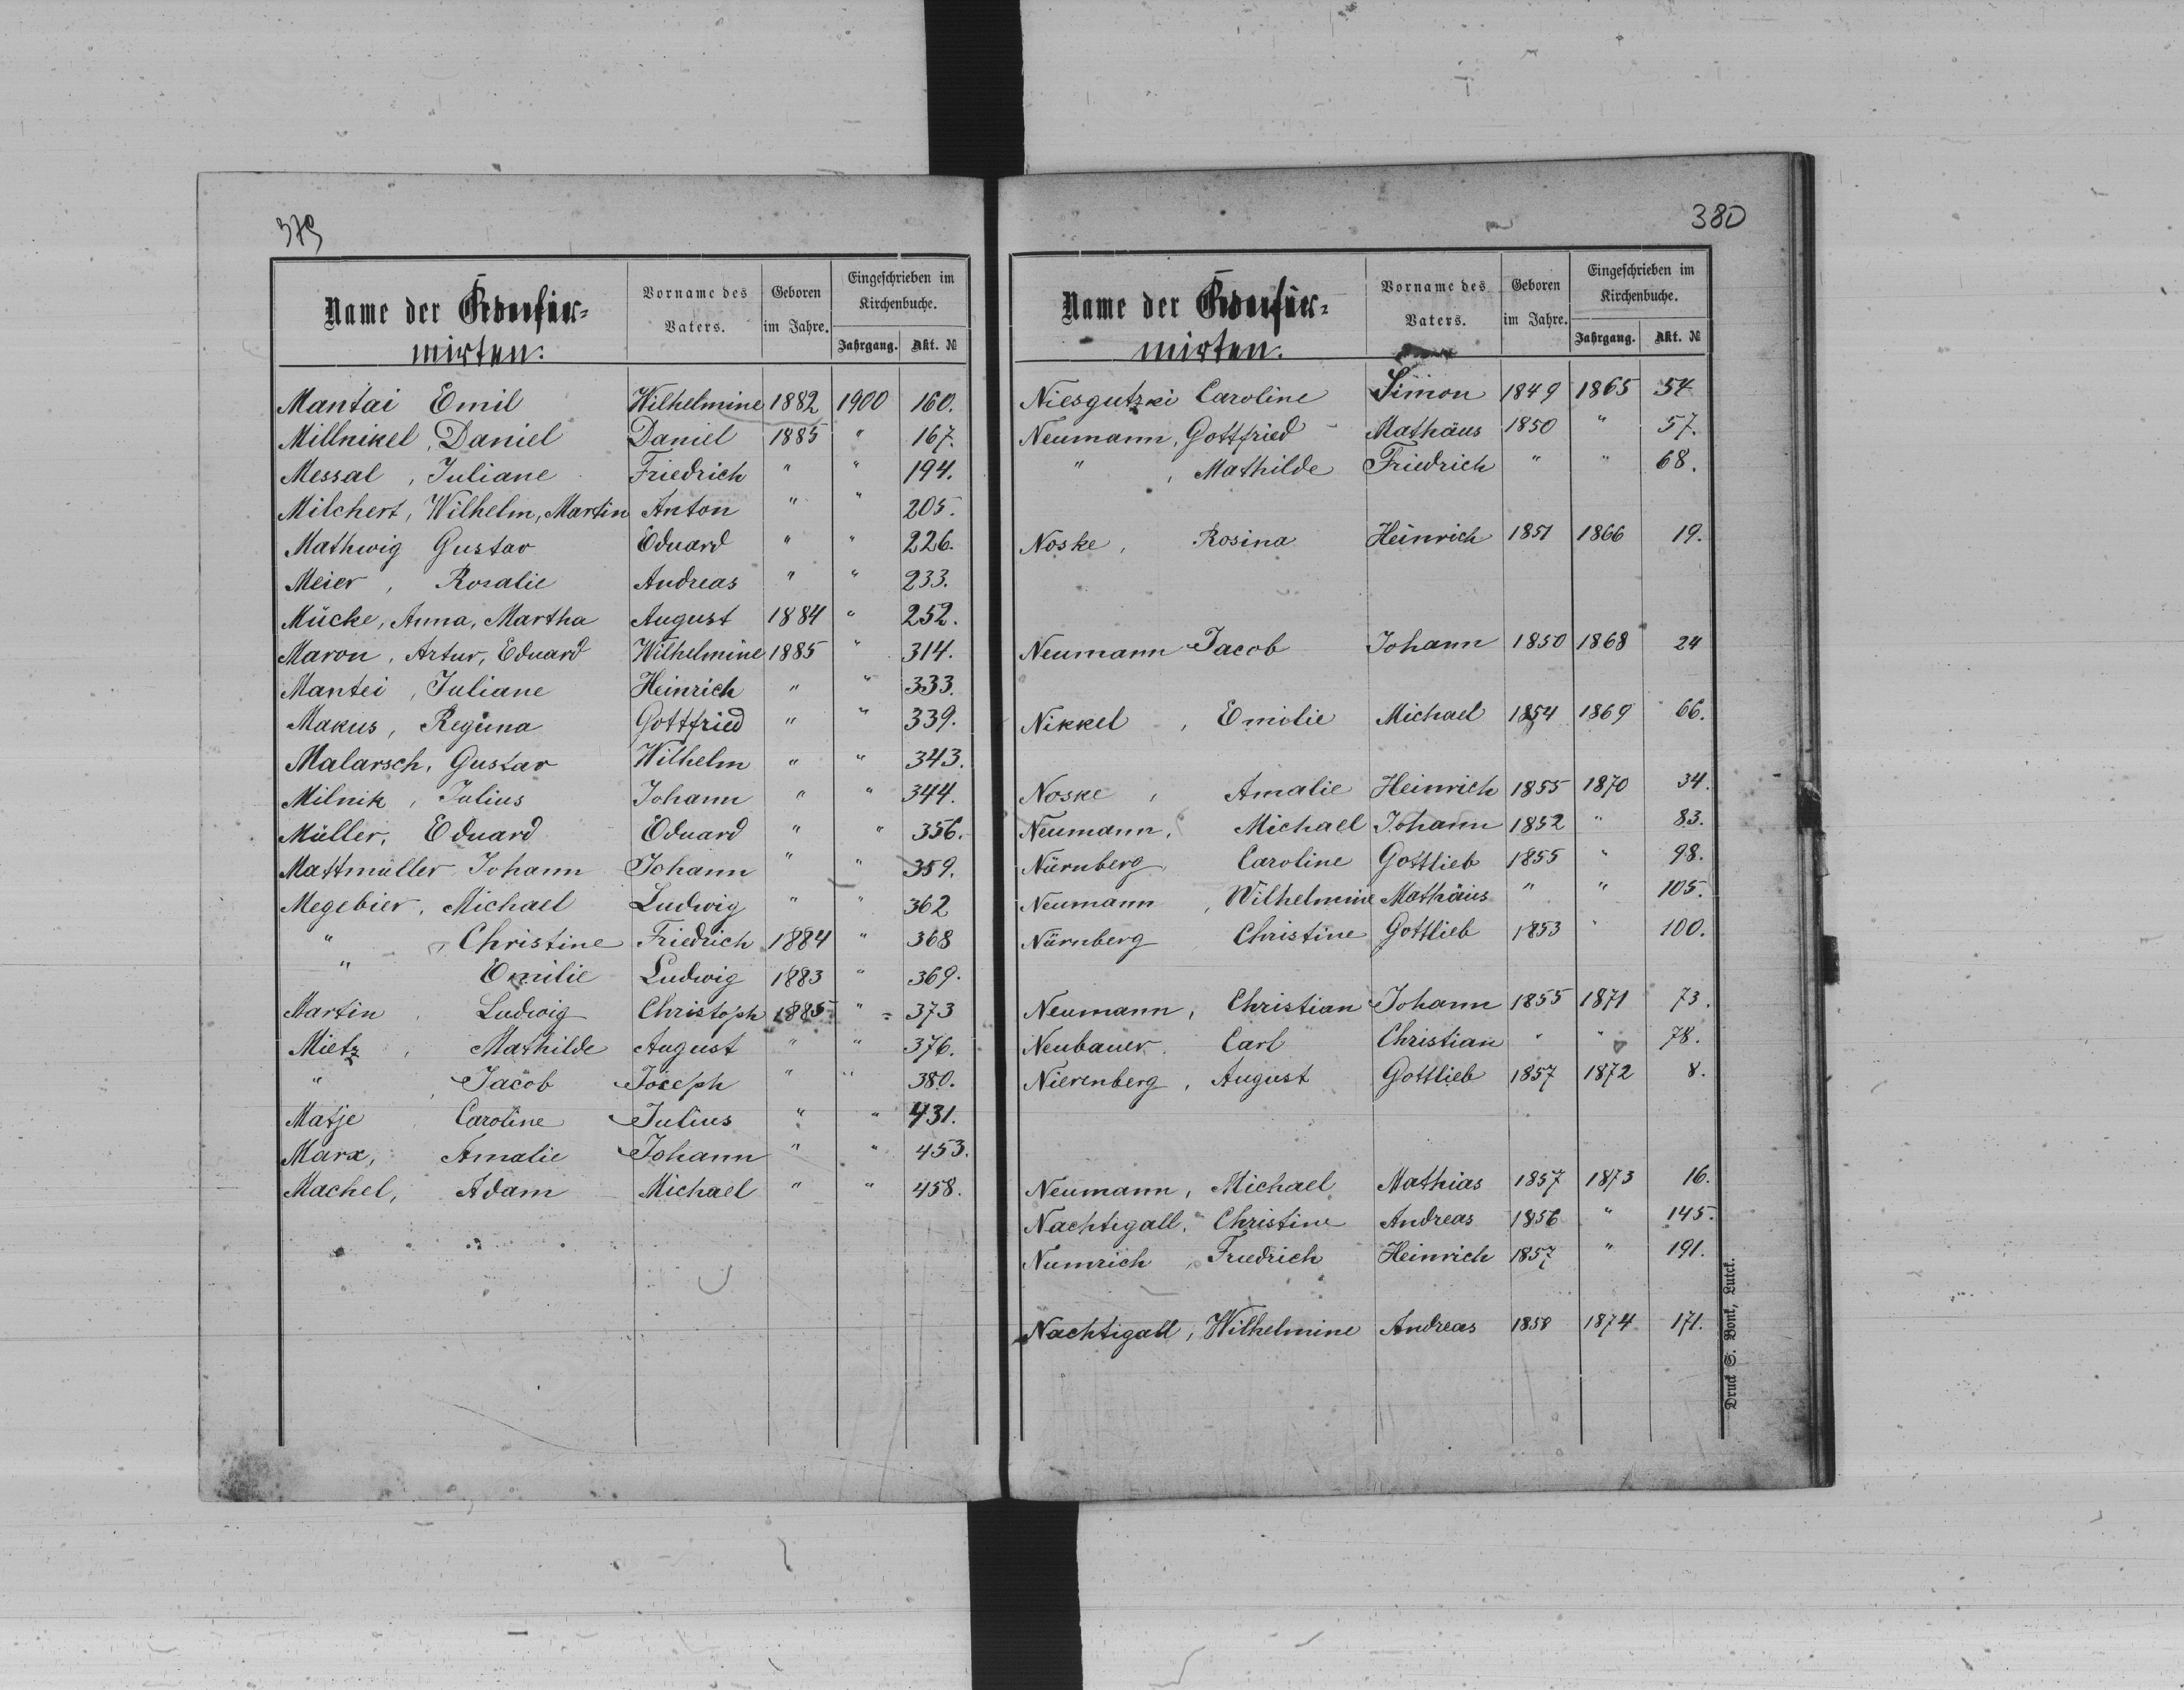 379
Name der Konfir=
mirten.
Vorname des
Vaters.
Geboren
im Jahre.
Eingeschrieben im
Kirchenbuche.
Jahrgang. Akt. №
Mantai Emil Wilhelmine 1882 1900 160.
Millnikel, Daniel Daniel 1885 " 167.
Messal, Juliane Friedrich " " 194.
Milchert, Wilhelm, Martin Anton " " 205.
Mathwig Gustav Eduard " " 226.
Meier, Rosalie Andreas " " 233.
Mücke, Anna, Martha August 1884 " 252.
Maron, Artur, Eduard Wilhelmine 1885 " 314.
Mantei, Juliane Heinrich " " 333.
Makus, Regina Gottfried " " 339.
Malarsch, Gustav Wilhelm " " 343.
Milnik, Julius Johann " " 344.
Müller, Eduard Eduard " " 356.
Mattmüller Johann Johann " " 359.
Megebier, Michael Ludwig " " 362
" Christine Friedrich 1884 " 368
" Emilie Ludwig 1883 " 369.
Martin, Ludwig Christoph 1885 " 373
Mietz, Mathilde August " " 376.
" , Jacob Joseph " " 380.
Matje, Caroline Julius " " 431.
Marx, Amalie Johann " " 453.
Machel, Adam Michael " " 458.
380
Name der Konfir=
mirten.
Vorname des
Vaters.
Geboren
im Jahre.
Eingeschrieben im
Kirchenbuche.
Jahrgang. Akt. №
Niesgutzki Caroline Simon 1849 1865 54
Neumann, Gottfried Mathäus 1850 " 57.
" , Mathilde Friedrich " " 68.
Noske, Rosina Heinrich 1851 1866 19.
Neumann Jacob Johann 1850 1868 24
Nikkel, Emilie Michael 1854 1869 66.
Noske, Amalie Heinrich 1855 1870 34.
Neumann, Michael Johann 1852 " 83.
Nürnberg, Caroline Gottlieb 1855 " 98.
Neumann, Wilhelmine Mathäus " " 105.
Nürnberg Christine Gottlieb 1853 " 100.
Neumann, Christian Johann 1855 1871 73.
Neubauer. Carl Christian " " 78.
Nierenberg, August Gottlieb 1857 1872 8.
Neumann, Michael Mathias 1857 1873 16.
Nachtigall, Christine Andreas 1856 " 145.
Numrich, Friedrich Heinrich 1857 " 191.
Nachtigall, Wilhelmine Andreas 1858 1874 171.
Druck S. Bonk, Lutck.